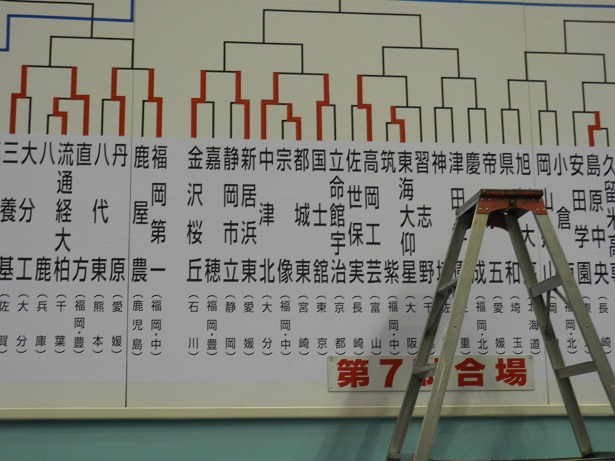 島原中央
安田学園
旭
県 和（埼玉）
帝 五（愛媛）
慶 成（福岡・北）
津田
神
習志野
東海大仰星（大阪）
筑紫（福岡・中）
高岡工芸（富山）
佐世保実（長崎）
立命館宇治（京都）
国士舘（東京）
都城東（宮崎）
宗像（福岡・中）
中津北（大分）
新居浜東（愛媛）
静岡市立（静岡）
嘉穂（福岡・豊）
金沢桜丘（石川）
福岡第一（福岡・中）
鹿屋農（鹿児島）
丹原（愛媛）
八代東（熊本）
直方（福岡・豊）
流通経大柏（千葉）
八鹿（兵庫）
大分工（大分）
三養基（佐賀）
第7試合場